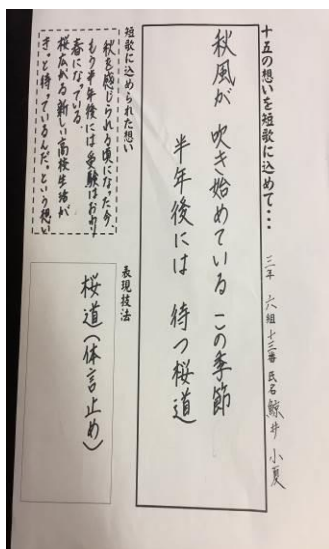 十五の想いを短歌に込めて・・・
三年 六組 十三番 氏名 鯨井 小夏
秋風が 吹き始めている この季節
半年後には 待つ桜道
短歌に込められた想い
秋を感じられる頃になった今、
もう半年後には受験はおわり
春になっている。
桜広がる新しい高校生活が
きっと待っているんだ。という想い
表現技法
桜道(体言止め)